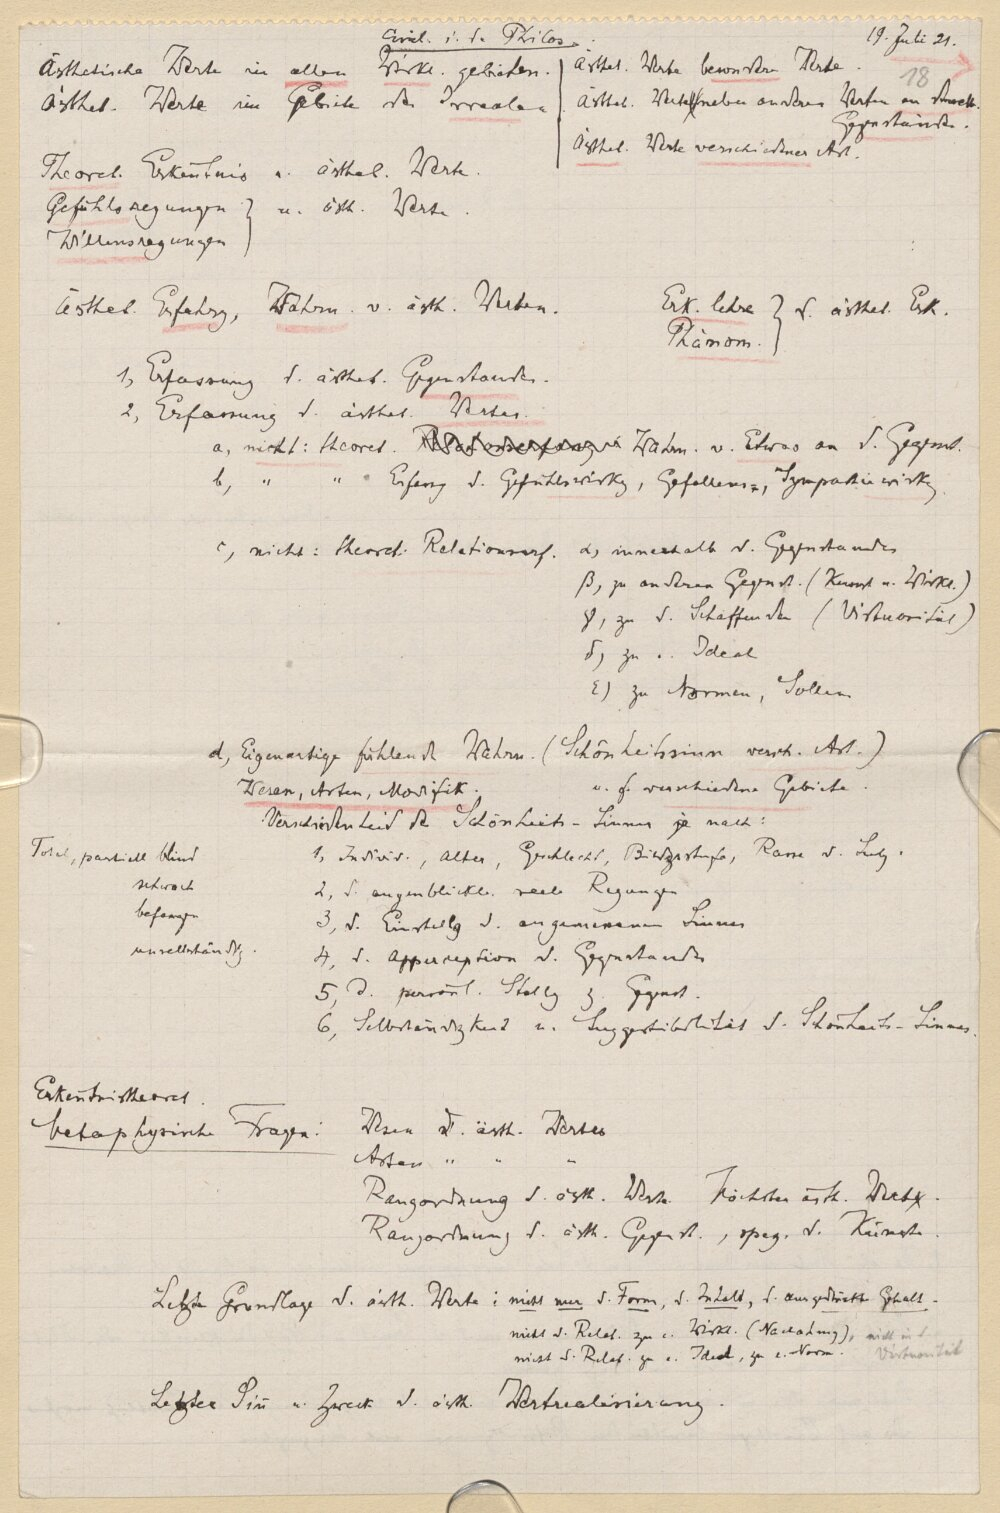 Einl. i. d. Philos.
19. Juli 21.
18
Ästhetische Werte in allen Wirkl. gebieten.
Ästhet. Werte im Gebiete des Irrealen
Ästhet. Werte besondere Werte.
Ästhet. Werte neben anderen Werten an denselb. Gegenständen.
Ästhet. Werte verschiedener Art.
Theoret. Erkenntnis u. ästhet. Werte.
Gefühlsregungen
Willensregungen
u. ästh. Werte.
Ästhet. Erfahrg, Wahrn. v. ästh. Werten.
Erk. lehre
Phänom.
d. ästhet. Erk.
1, Erfassung d. ästhet. Gegenstandes.
2, Erfassung d. ästhet. Wertes.
a, nicht: theoret. Wahrn. v. Etwas an d. Gegenst.
b, " " Erfassg d. Gefühlswirkg, Gefallens-, Sympathiewirkg
c, nicht: theoret. Relationserf. α, innerhalb d. Gegenstandes
β, zu anderen Gegenst. (Kunst u. Wirkl.)
γ, zu d. Schaffenden (Virtuosität)
δ, zu e. Ideal
ε) zu Normen, Sollen
d, Eigenartige fühlende Wahrn. (Schönheitssinn versch. Art.)
Wesen, Arten, Modifik. u. f. verschiedene Gebiete.
Verschiedenheit des Schönheits-Sinnes je nach:
Total, partiell blind
schwach
befangen
unselbständig.
1, Individ., Alter, Geschlecht, Bildgsstufe, Rasse d. Subj.
2, d. augenblickl. seel. Regungen
3, d. Einstellg d. angemessenen Sinnes
4, d. Apperzeption d. Gegenstandes
5, d. persönl. Stellg z. Gegenst.
6, Selbständigkeit u. Suggestibilität d. Schönheits-Sinnes.
Erkenntnistheoret.
Metaphysische Fragen: Wesen d. ästh. Wertes
Arten " " "
Rangordnung d. ästh. Werte Höchster ästh. Wert.
Rangordnung d. ästh. Gegenst., spez. d. Künste.
Letzte Grundlage d. ästh. Werte: nicht nur d. Form, d. Inhalt, d. ausgedrückte Gehalt.
nicht d. Relat. zu e. Wirkl. (Nachahmung), nicht in d. Virtuosität
nicht d. Relat. zu e. Ideal, zu e. Norm.
Letzter Sinn u. Zweck d. ästh. Wertrealisierung.